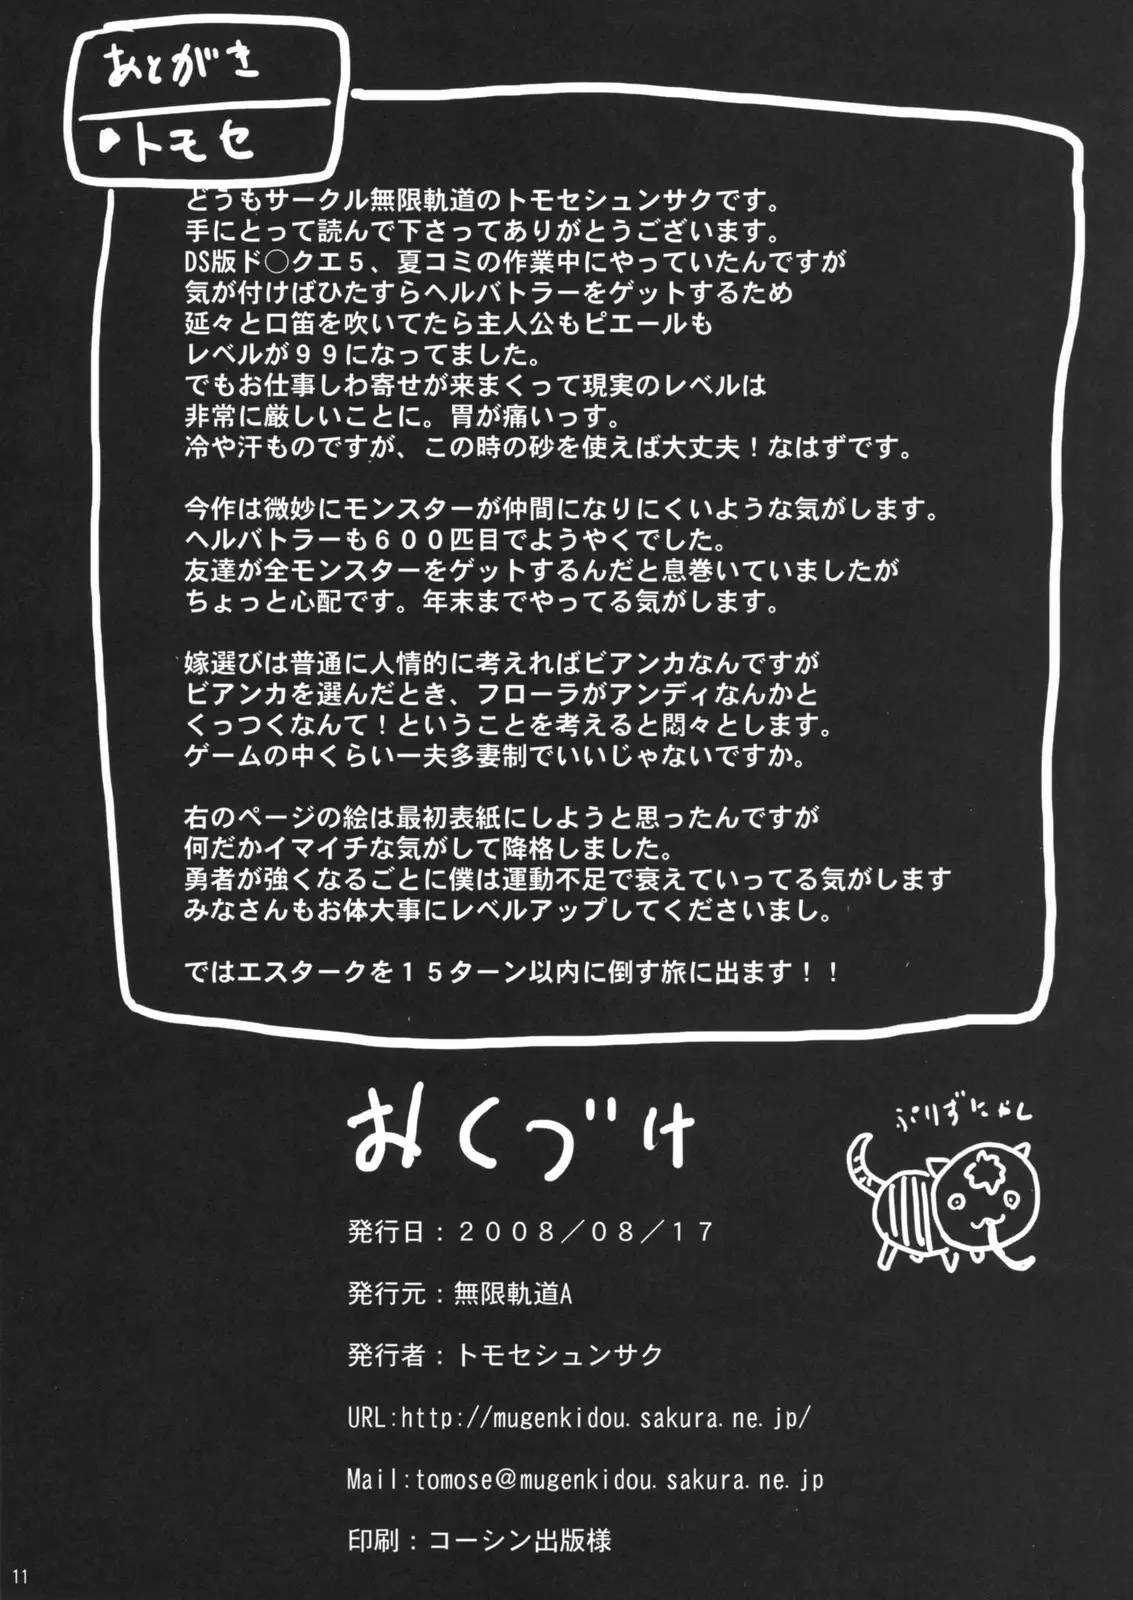 あとがき
・トモセ
どうもサークル無限軌道のトモセシュンサクです。
手にとって読んで下さってありがとうございます。
DS版ド◯クエ５、夏コミの作業中にやっていたんですが
気が付けばひたすらヘルバトラーをゲットするため
延々と口笛を吹いてたら主人公もピエールも
レベルが９９になってました。
でもお仕事しわ寄せが来まくって現実のレベルは
非常に厳しいことに。胃が痛いっす。
冷や汗ものですが、この時の砂を使えば大丈夫！なはずです。
今作は微妙にモンスターが仲間になりにくいような気がします。
ヘルバトラーも６００匹目でようやくでした。
友達が全モンスターをゲットするんだと息巻いていましたが
ちょっと心配です。年末までやってる気がします。
嫁選びは普通に人情的に考えればビアンカなんですが
ビアンカを選んだとき、フローラがアンディなんかと
くっつくなんて！ということを考えると悶々とします。
ゲームの中くらい一夫多妻制でいいじゃないですか。
右のページの絵は最初表紙にしようと思ったんですが
何だかイマイチな気がして降格しました。
勇者が強くなるごとに僕は運動不足で衰えていってる気がします
みなさんもお体大事にレベルアップしてくださいまし。
ではエスタークを１５ターン以内に倒す旅に出ます！！
おくづけ
ぷりずにゃん
発行日：２００８／０８／１７
発行元：無限軌道A
発行者：トモセシュンサク
URL:http://mugenkidou.sakura.ne.jp/
Mail:tomose@mugenkidou.sakura.ne.jp
印刷：コーシン出版様
11